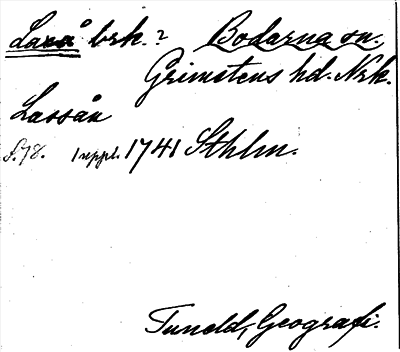 Laxå brk.? Bodarna sn.
Grimstens hd. Nrk.
Lassån
s. 78. 1 uppl. 1741 Sthlm.
Tuneld, Geografi.